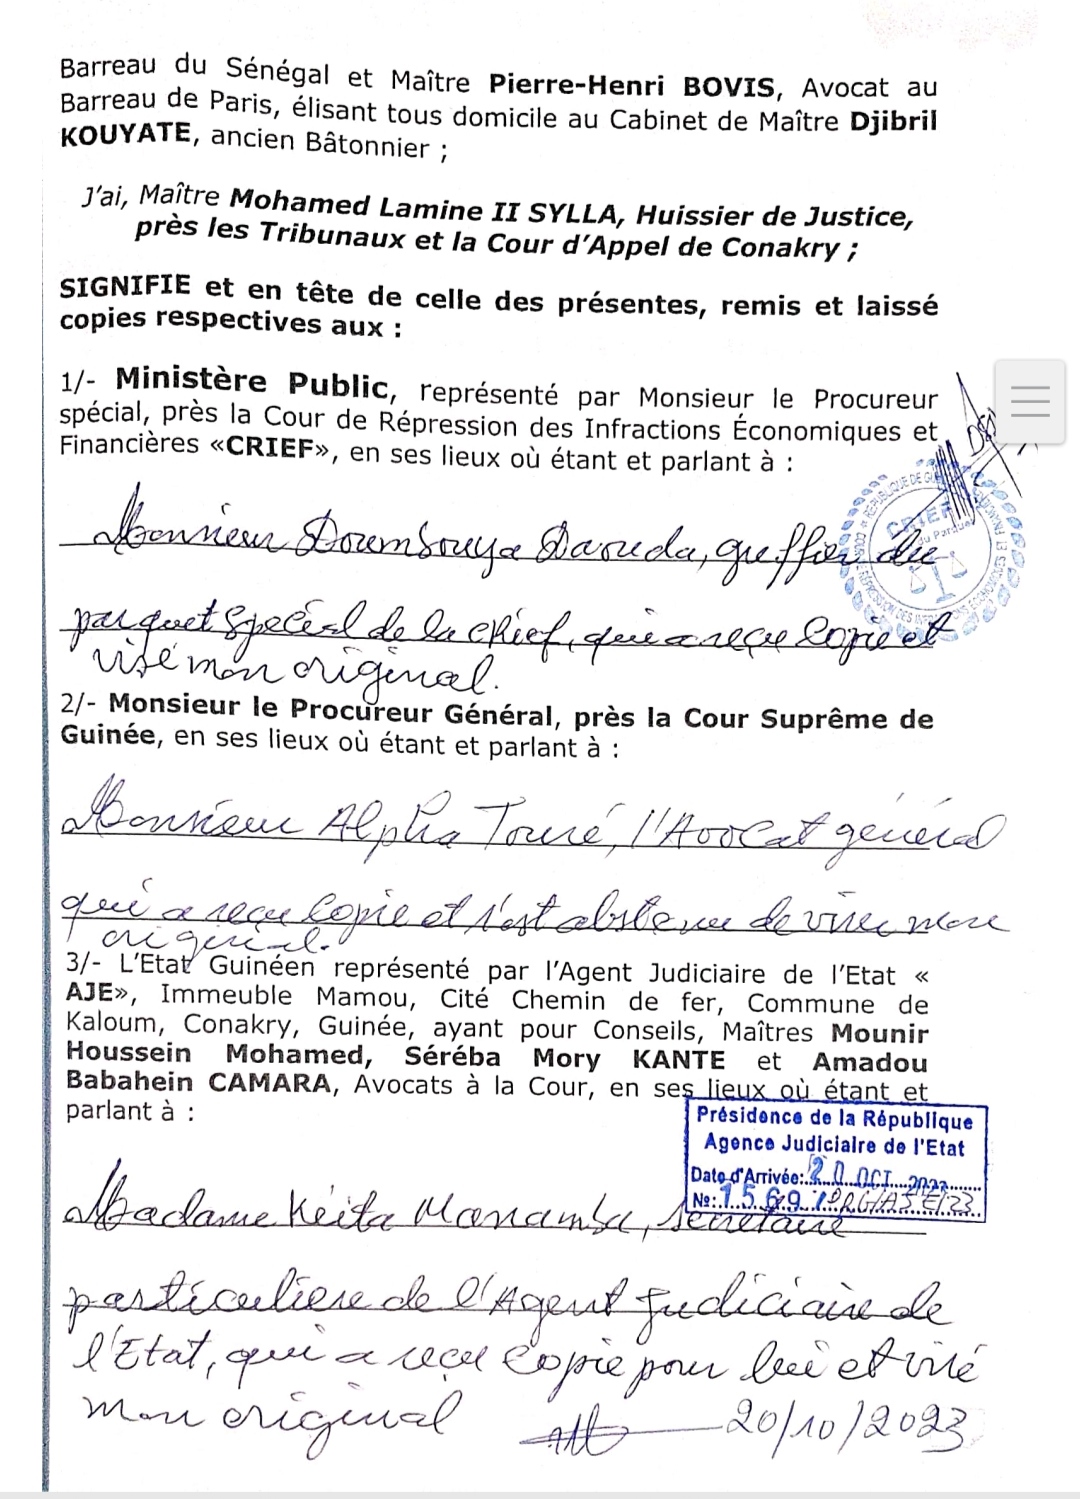 Barreau du Sénégal et Maître Pierre-Henri BOVIS, Avocat au
Barreau de Paris, élisant tous domicile au Cabinet de Maître Djibril
KOUYATE, ancien Bâtonnier ;
J'ai, Maître Mohamed Lamine II SYLLA, Huissier de Justice,
près les Tribunaux et la Cour d'Appel de Conakry ;
SIGNIFIE et en tête de celle des présentes, remis et laissé
copies respectives aux :
1/- Ministère Public, représenté par Monsieur le Procureur
spécial, près la Cour de Répression des Infractions Économiques et
Financières «CRIEF», en ses lieux où étant et parlant à :
Monsieur Doumbouya Daouda, greffier du
parquet spécial de la crief, qui a reçu copie et
visé mon original.
2/- Monsieur le Procureur Général, près la Cour Suprême de
Guinée, en ses lieux où étant et parlant à :
Monsieur Alpha Touré, l'Avocat général
qui a reçu copie et s'est abstenu de viser mon
original.
3/- L'Etat Guinéen représenté par l'Agent Judiciaire de l'Etat «
AJE», Immeuble Mamou, Cité Chemin de fer, Commune de
Kaloum, Conakry, Guinée, ayant pour Conseils, Maîtres Mounir
Houssein Mohamed, Séréba Mory KANTE et Amadou
Babahein CAMARA, Avocats à la Cour, en ses lieux où étant et
parlant à :
Présidence de la République
Agence Judiciaire de l'Etat
Date d'Arrivée: 20 OCT 2023
N°: 1569
Madame Keita Manamba, secretaire
particulière de l'Agent Judiciaire de
l'Etat, qui a reçu copie pour lui et visé
mon original
20/10/2023